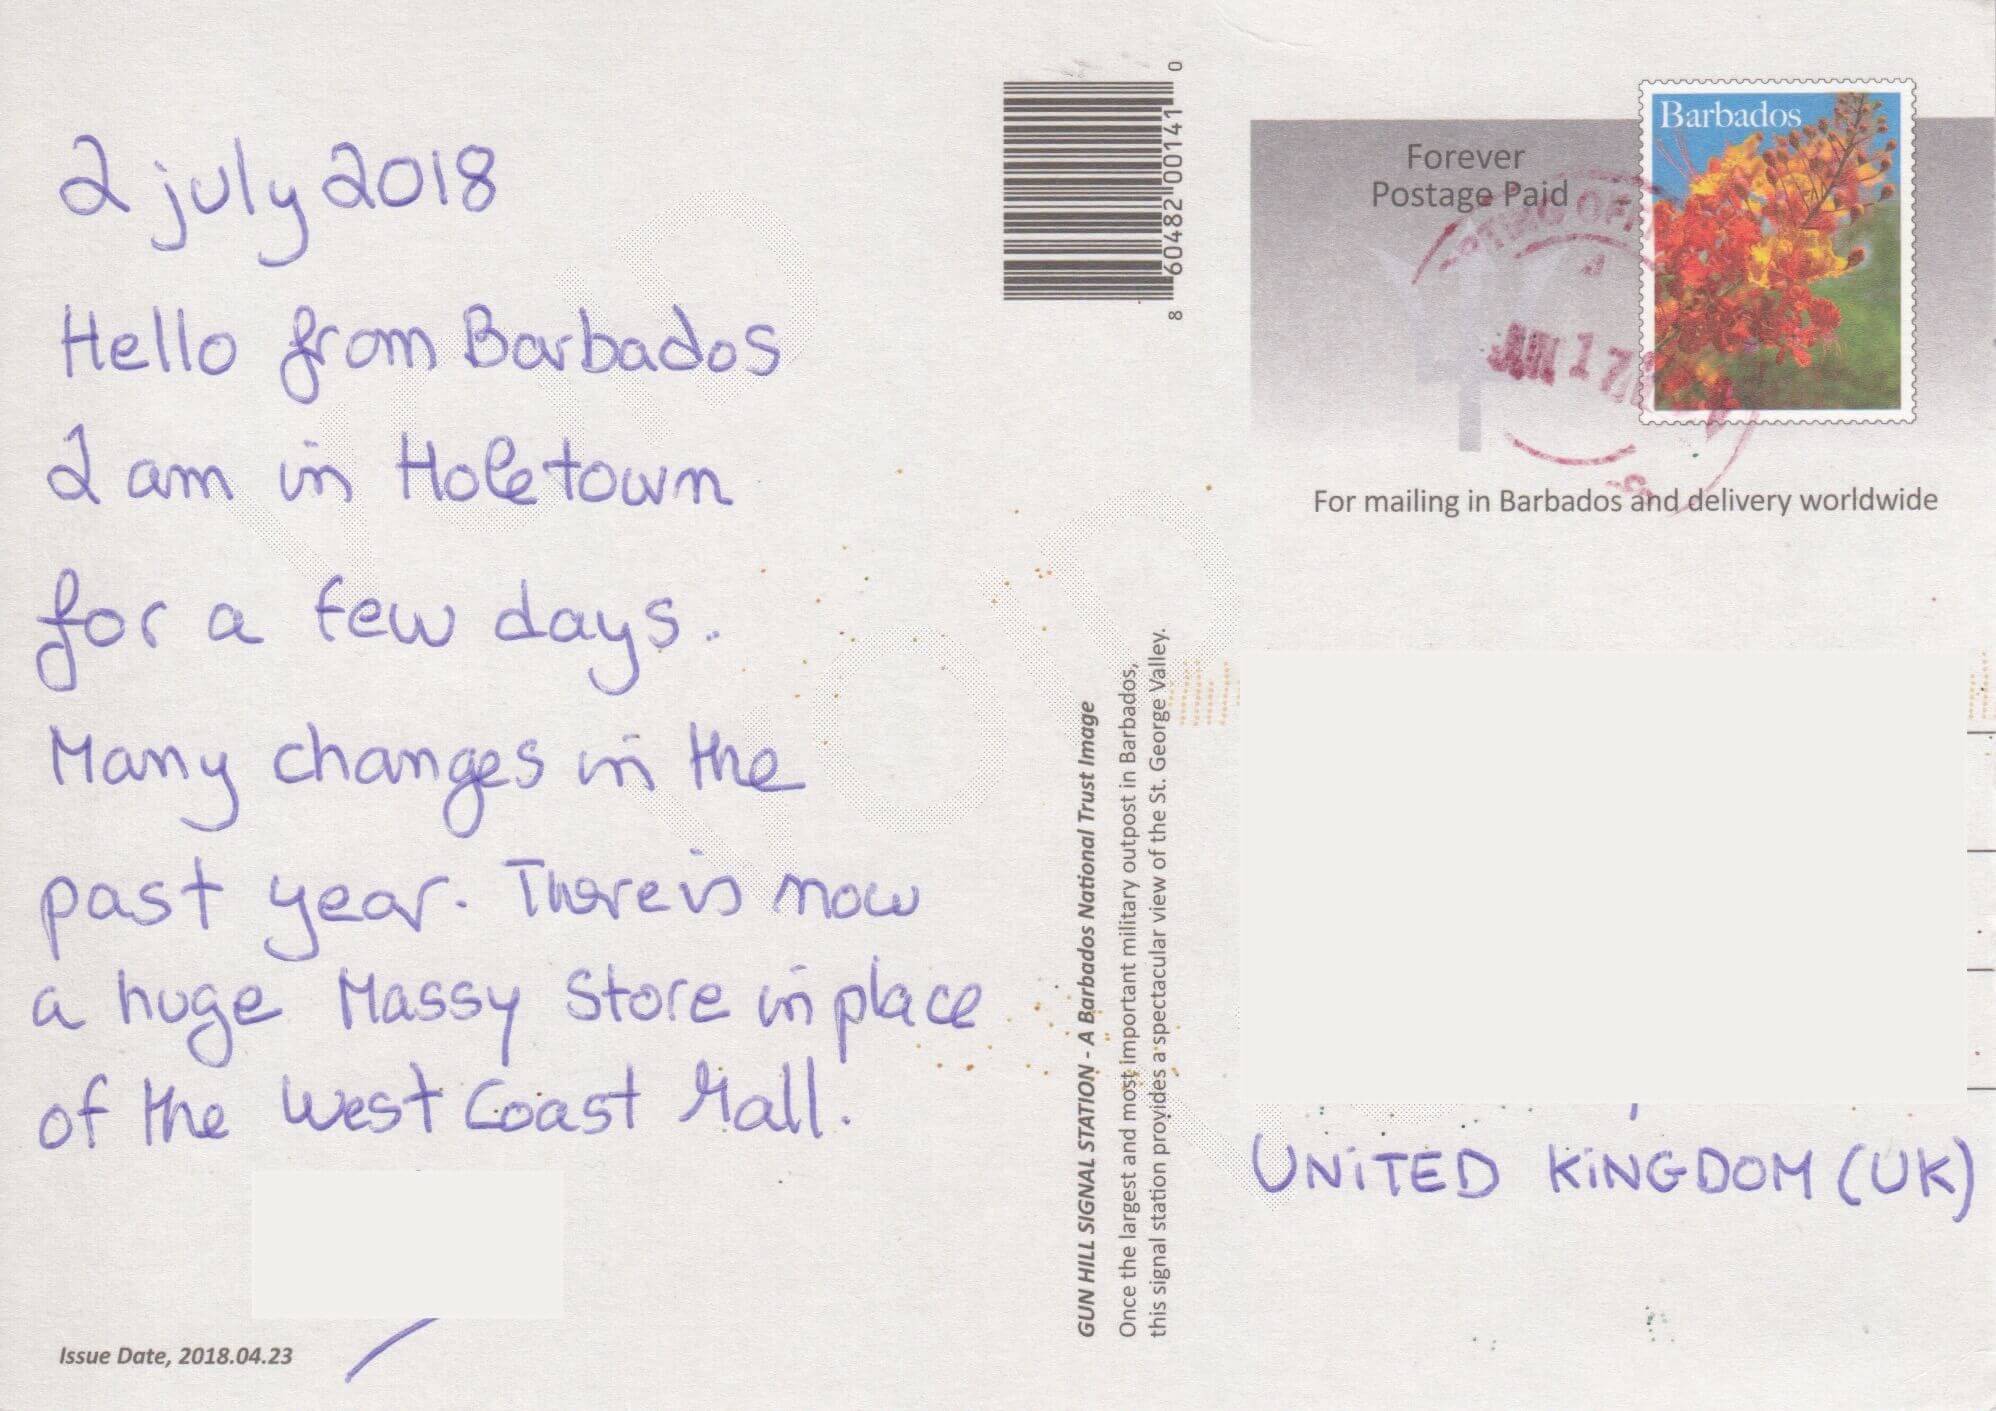 2 july 2018
Hello from Barbados
I am in Holetown
for a few days.
Many changes in the
past year. There is now
a huge Massy Store in place
of the West Coast Mall.
Issue Date, 2018.04.23
8 60482 00141 0
GUN HILL SIGNAL STATION - A Barbados National Trust Image
Once the largest and most important military outpost in Barbados,
this signal station provides a spectacular view of the St. George Valley.
Forever
Postage Paid
Barbados
17
For mailing in Barbados and delivery worldwide
UNITED KINGDOM (UK)
VOID
VOID